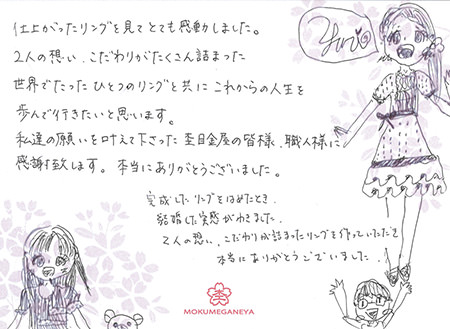 仕上がったリングを見てとても感動しました。
2人の想い、こだわりがたくさん詰まった
世界でたったひとつのリングと共にこれからの人生を
歩んで行きたいと思います。
私達の願いを叶えて下さった杢目金屋の皆様、職人様に
感謝致します。本当にありがとうございました。
完成したリングをはめたとき、
結婚した実感がわきました。
2人の想い、こだわりが詰まったリングを作っていただき
本当にありがとうございました。
杢
MOKUMEGANEYA